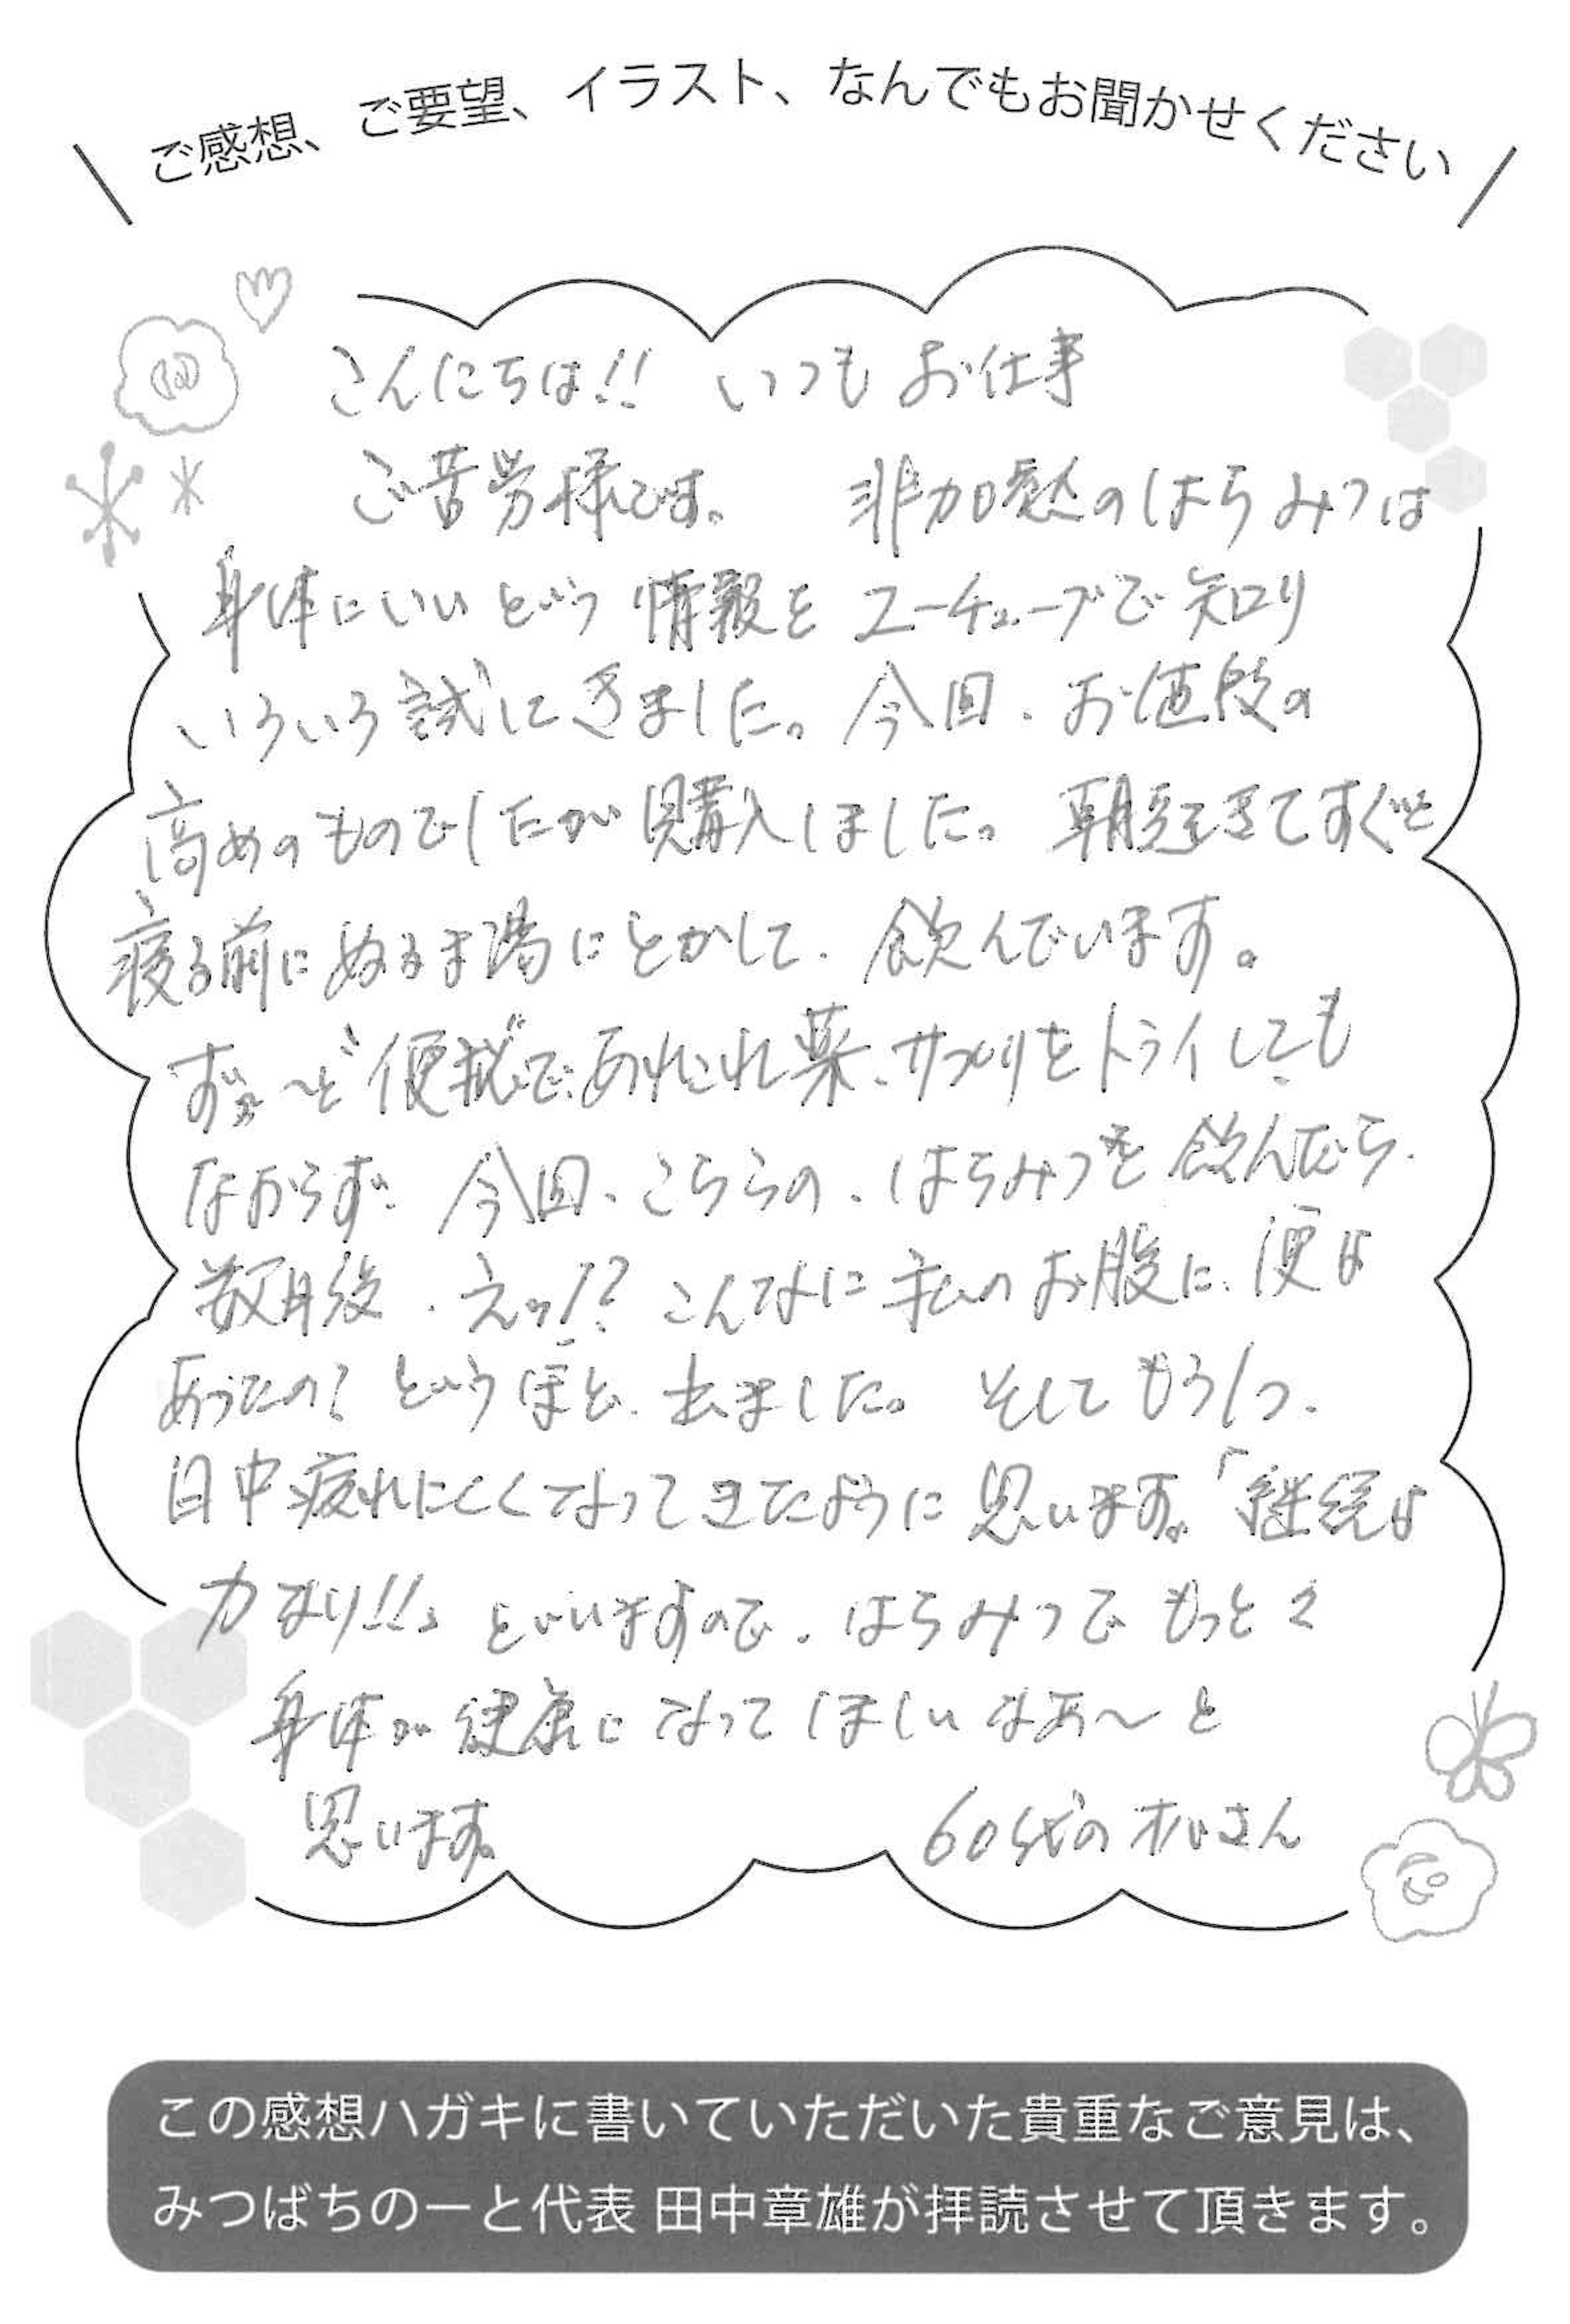 ご感想、ご要望、イラスト、なんでもお聞かせください
こんにちは!! いつもお仕事
ご苦労様です。 非加熱のはちみつは
身体にいいという情報をユーチューブで知り
いろいろ試してきました。今回、お値段の
高めのものでしたが購入しました。朝起きてすぐと
寝る前にぬるま湯にとかして、飲んでいます。
ず〜っと"便秘"で、あれこれ薬、サプリをトライしても
なおらず、今回、こちらの、はちみつを飲んだら、
数日後、えッ!? こんなに私のお腹に、便は
あったの? というほど、出ました。そしてもう1つ、
日中疲れにくくなってきたように思います。「継続は
力なり!!」といいますので、はちみつでもっと々
身体が健康になってほしいなあ〜と
思います。 60代の さん
この感想ハガキに書いていただいた貴重なご意見は、
みつばちのーと代表 田中章雄が拝読させて頂きます。